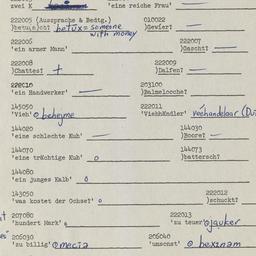 zwei K 'eine reiche Frau'
222005 (Aussprache & Bedtg.) 010022
)betu(n)cht? betüx = someone with money )Gevier?
222006 222007
'ein armer Mann' )Dascht?
222008 222009
)Chattes? )Dalfen?
222010 203100
'ein Handwerker' )Balmelooche?
145050 222011
'Vieh' beheyme 'Viehhändler' veehandelaar (Du
144020 144030
'eine schlechte Kuh' )Boore?
144070 144073
'eine trächtige Kuh' o )battersch?
144080
'ein junges Kalb' o
143050 222012
'was kostet der Ochse?' o )schuckt?
207080 222013
'hundert Mark' 'zu teuer' jauker
206030 206040
'zu billig' mecia 'umsonst' bexinam